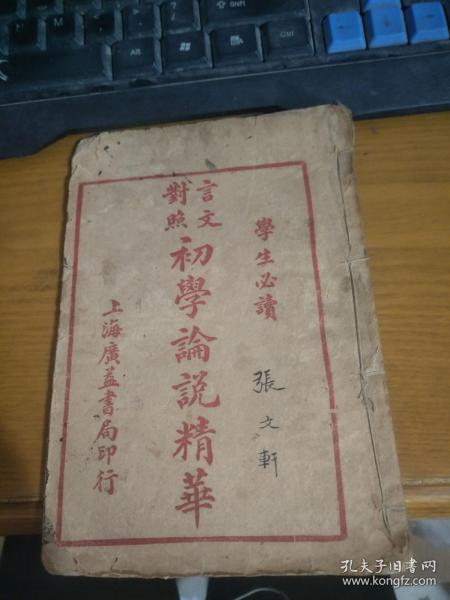 學生必讀
張文軒
言文
對照
初學論説精華
上海廣益書局印行
Shift
Alt
Ctrl
孔夫子旧书网
www.kongfz.com